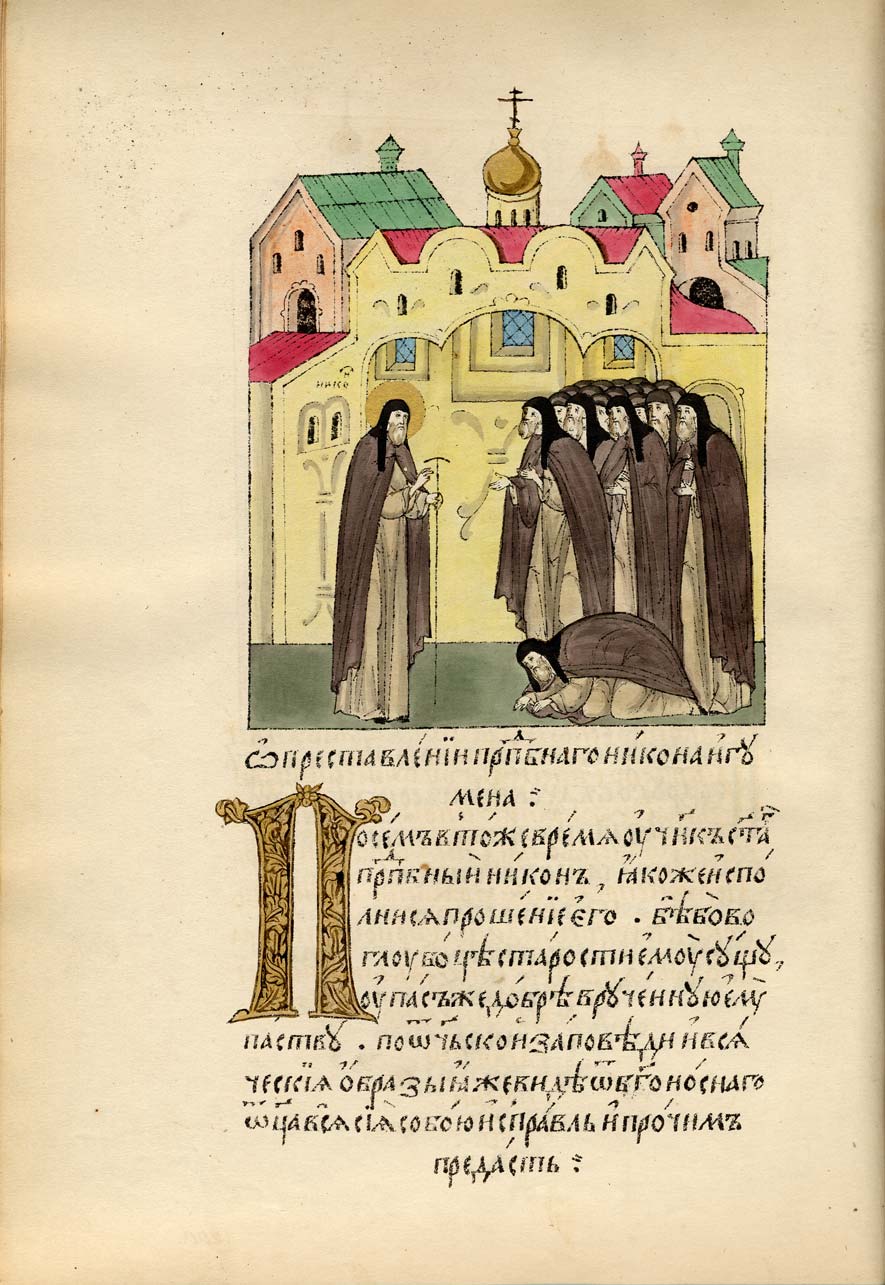 нико н
Ѡ преставле́нїи прпⷣбнаго ни́кона и҆гꙋ
мена :
По се́мъ в то́же вре́мѧ оу҆чн҃къ ст҃а
прпⷣбный ни́конъ, ꙗ҆коже и҆спо
лнисѧ проше́нїе е҆го̀ . бѣ бо во
глоубо́цѣ старости е҆моу̀ сꙋ́щꙋ,
оу҆па́съ же до́брѣ врꙋче́ннꙋю е҆мꙋ̀
па́ствꙋ . по ѻ҆ч҃ьской за́повѣди и҆ всѧ́
ческїѧ ѻ҆́бразы ꙗ҆́же ви́дѣ ѿ бг҃оно́снаго
ѻ҆ц҃а̀ всѧ̑ сїѧ̑ собо́ю и҆спра́вль и҆ про́чимъ
преда́сть :